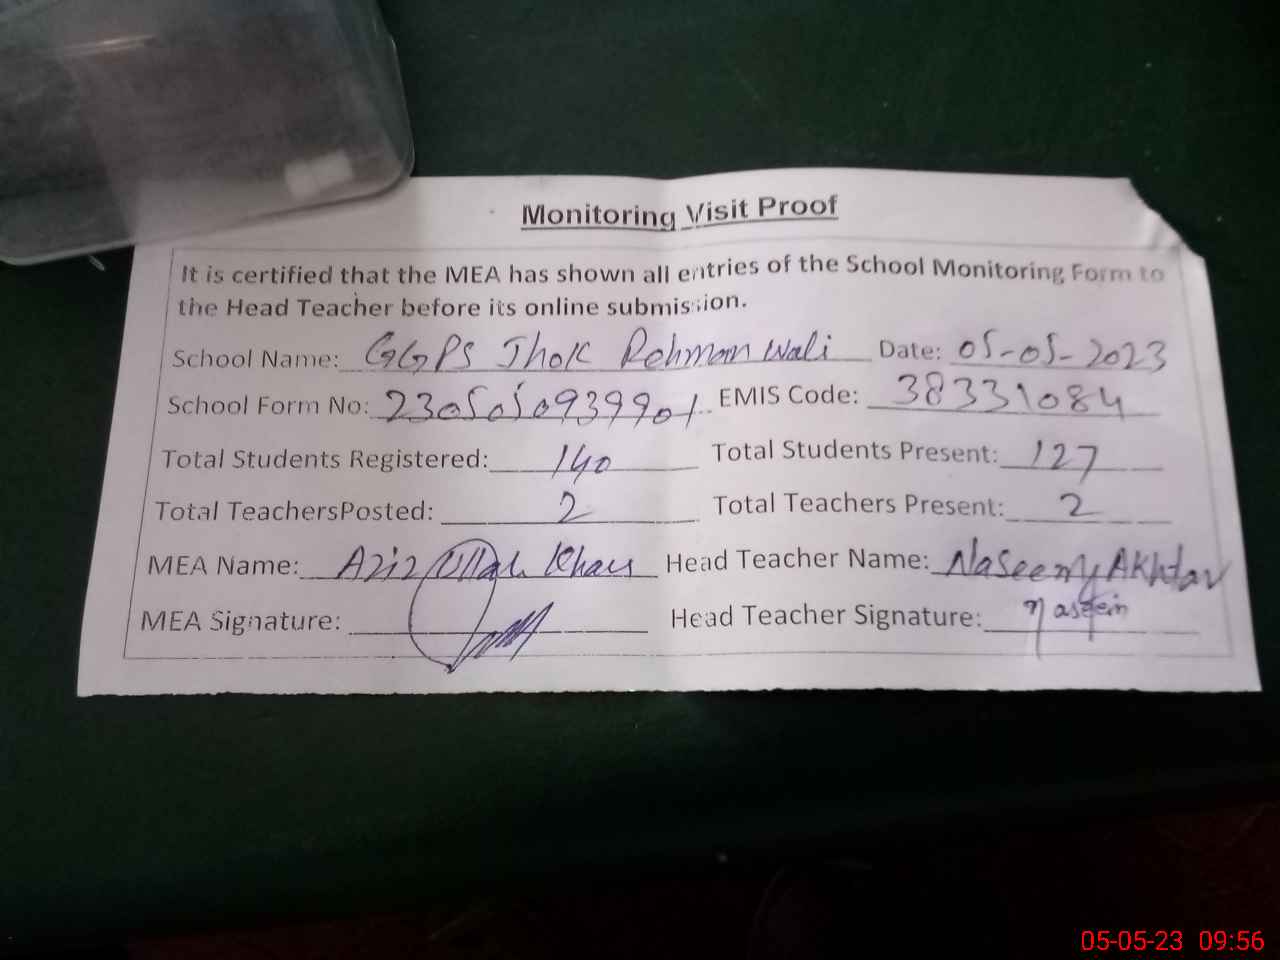 Monitoring Visit Proof
It is certified that the MEA has shown all entries of the School Monitoring Form to
the Head Teacher before its online submission.
School Name: GGPS Jhok Rehman Wali Date: 05-05-2023
School Form No: 2305050939901 EMIS Code: 38331084
Total Students Registered: 140 Total Students Present: 127
Total TeachersPosted: 2 Total Teachers Present: 2
MEA Name: Aziz Ullah Khan Head Teacher Name: Naseem Akhtar
MEA Signature: Head Teacher Signature:
05-05-23 09:56